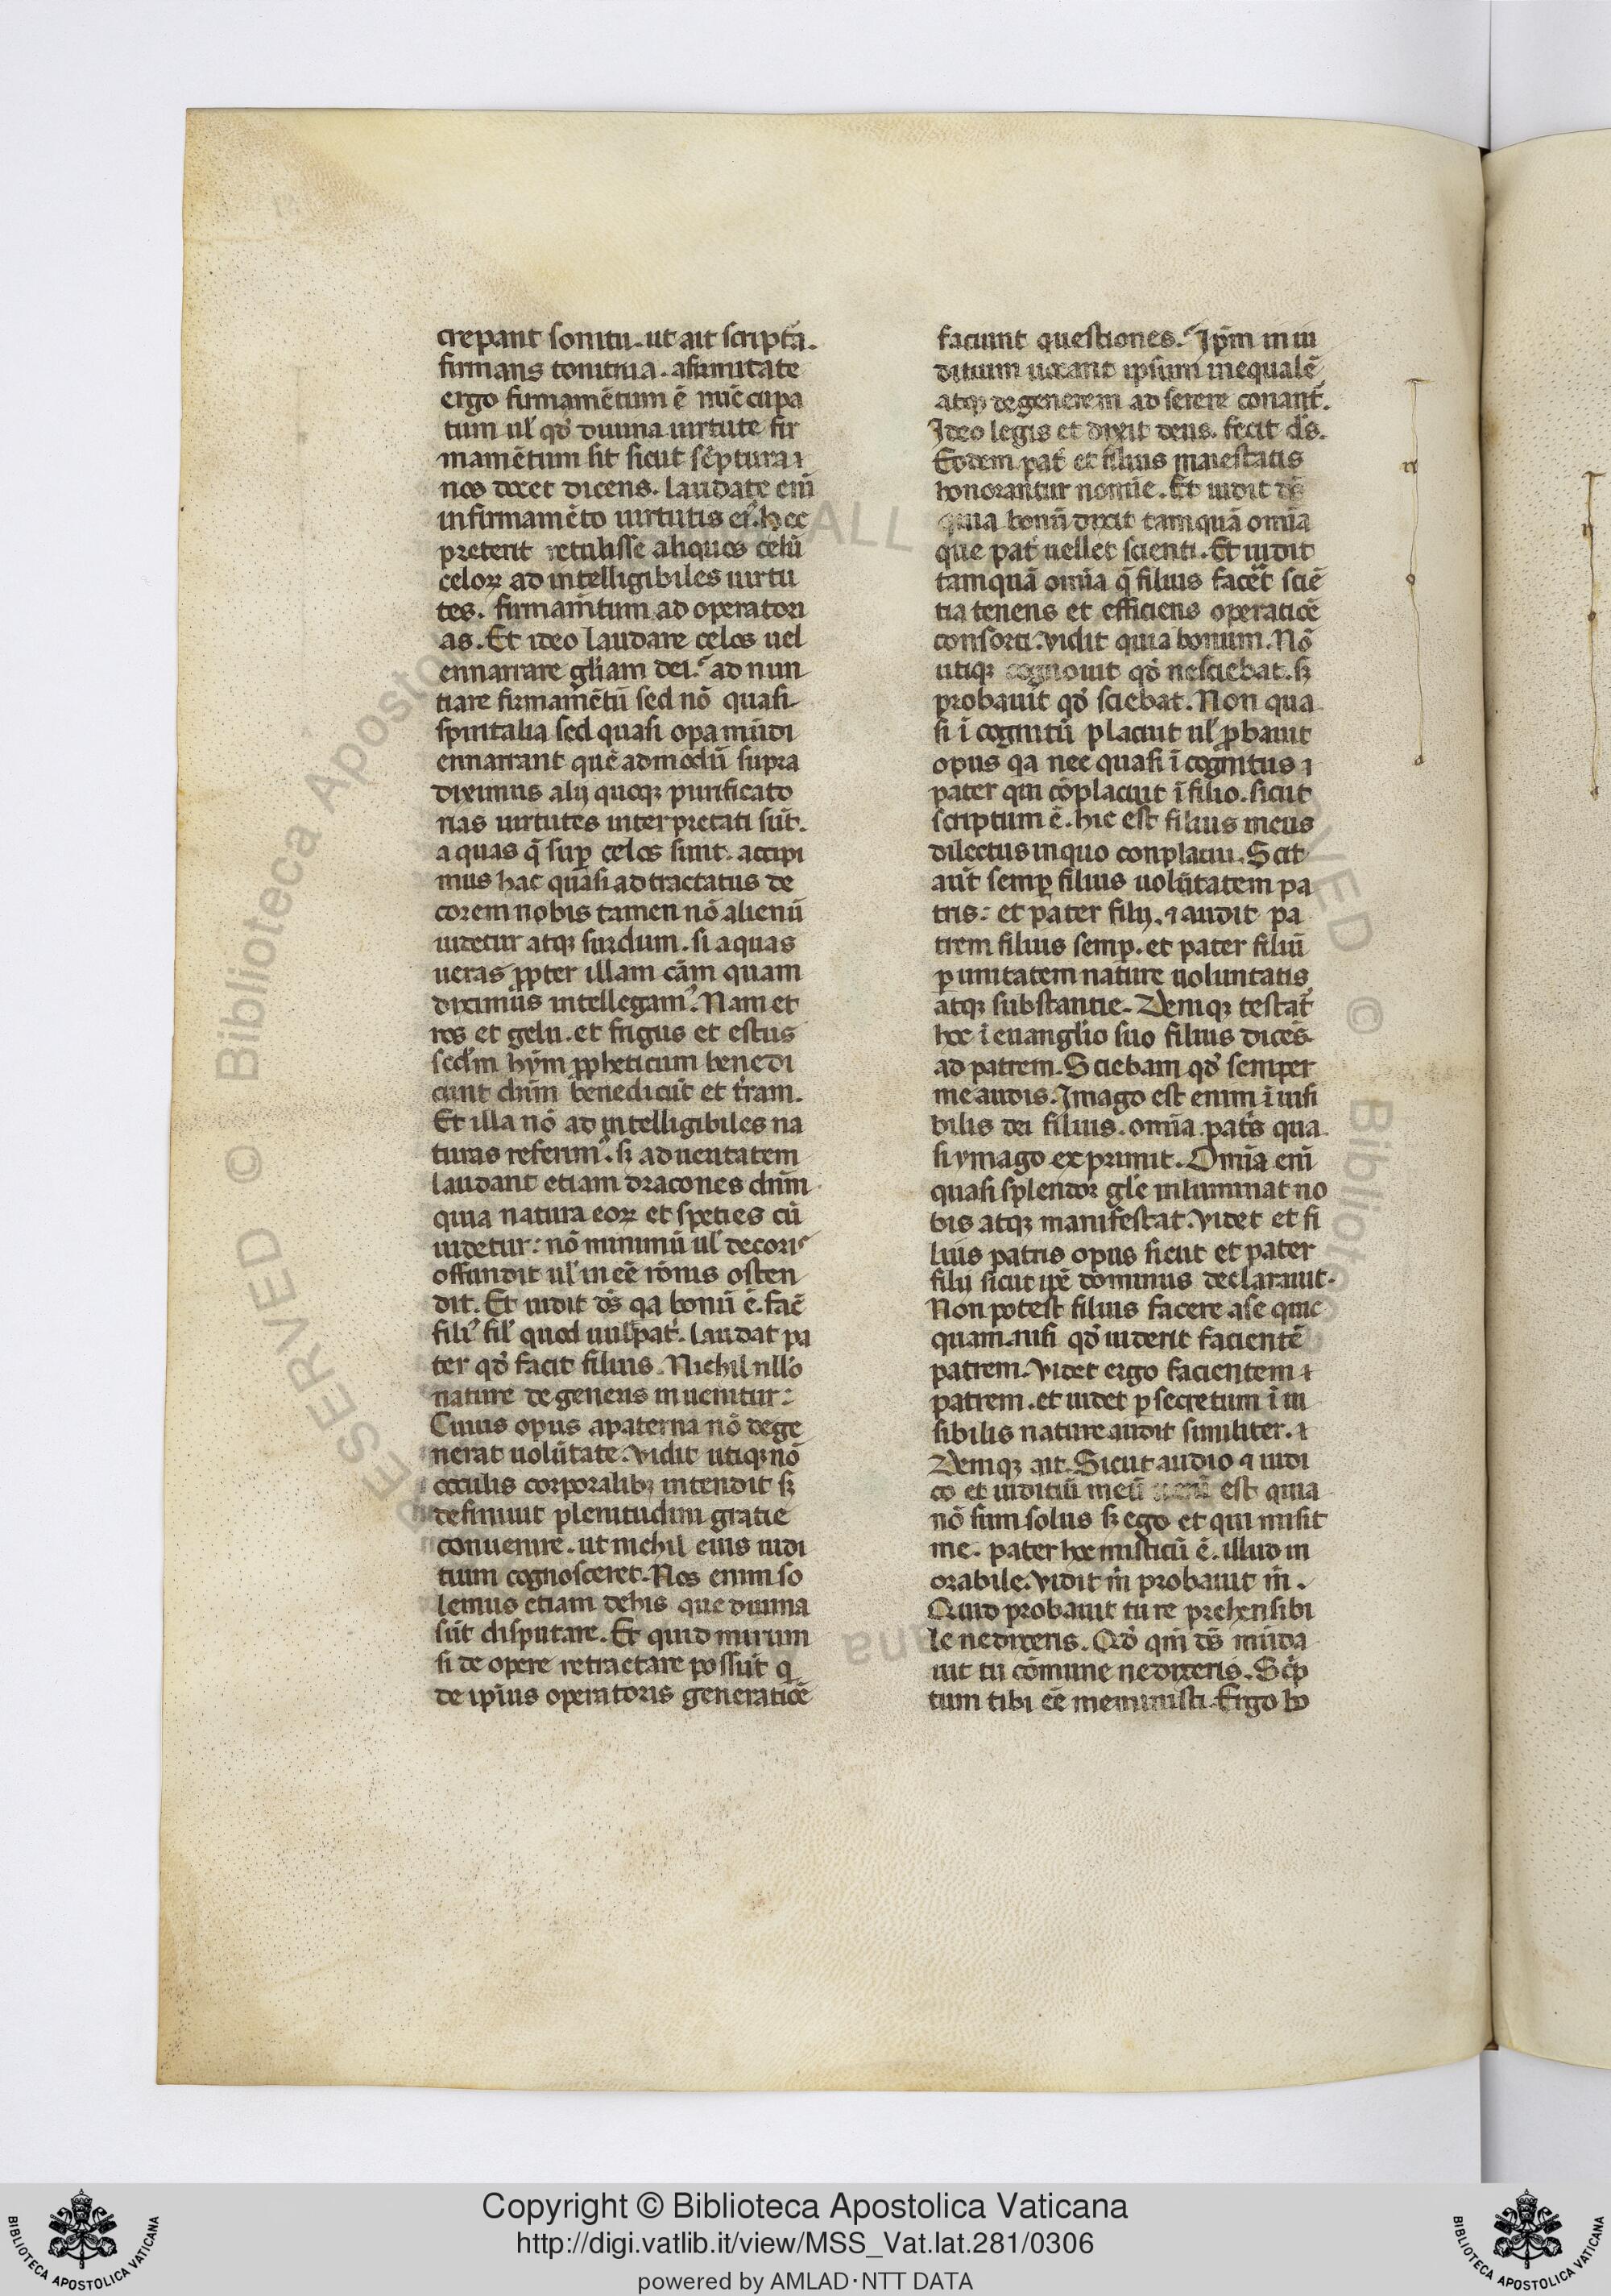 crepant sonitu. ut ait scripta.
firmans tonitrua. afirmitate
ergo firmamētum ē nūcupa
tum ul' qd' diuina uirtute fir
mamētum sit sicut scrptura
nos docet dicens. laudate eni
in firmamēto uirtutis ei'. hec
preterit retulisse aliquos celū
celorꝝ ad intelligibiles uirtu
tes. firmam̄tum ad operatori
as. Et ideo laudare celos uel
ennarrare gl'iam dei. ad nun
tiare firmamētū sed nō quasi
spiritalia sed quasi opa mūdi
ennarrant quē admodū supra
diximus alij quoqꝫ purificato
rias uirtutes interpretati sūt.
aquas q̄ sup celos sunt. accipi
mus hac quasi ad tractatus de
corem nobis tamen nō alienū
uidetur atqꝫ surdum. si aquas
ueras ꝓpter illam cām quam
diximus intellegam'. Nam et
ros et gelu. et frigus et estus
scd'm hym̄ ꝓpheticum benedi
cunt dnm̄ benedicūt et tr̄am.
Et illa nō ad intelligibiles na
turas referim'. sꝫ ad ueritatem
laudant etiam dracones dnm̄
quia natura eorꝝ et species cū
uidetur: nō minimū ul' decoris
offundit ul' in eē rōnis osten
dit. Et uidit ds̄ qa bonū ē. facē
fili' fil' quod uult pat'. laudat pa
ter qd' facit filius. Nichil illo
nature degeneris inuenitur:
Cuius opus apaterna nō dege
nerat uolūtate. Vidit utiqꝫ nō
occulis corporalibꝫ intendit sꝫ
definiuit plenitudini gratie
conuenire. ut nichil eius iudi
tium cognosceret. Nos enim so
lemus etiam dehis que diuina
sūt disputare. Et quid mirum
si de opere retractare possūt q
de ipsius operatoris generatiōē
faciunt questiones. Ipm̄ in iu
ditium uocant ipsum inequalē
atqꝫ degenerem adserere conant'.
Ideo legis et dixit deus. fecit ds̄.
Eodem pat' et filius maiestatis
honorantur nomīe. Et uidit ds̄
quia bonū dixit tamquā omīa
que pat' uellet scienti. Et uidit
tamquā omīa q̄ filius facēt sciē
tia tenens et efficiens operatiōē
consorti. Vidit quia bonum. Nō
utiqꝫ cognouit qd' nesciebat. sꝫ
probauit qd' sciebat. Non qua
si ī cognitū placuit ul' ꝓbauit
opus qa nec quasi ī cognitus
pater qui cōplacuit ī filio. sicut
scriptum ē. hic est filius meus
dilectus inquo conplacui. Scit
aut̄ semꝑ filius uolūtatem pa
tris: et pater filij. ⁊ audit pa
trem filius semp. et pater filiū
ꝑ unitatem nature uoluntatis
atqꝫ substantie. Deniqꝫ testat'
hoc ī euanglio suo filius dicēs
ad patrem. Sciebam qd' semper
me audis. Imago est enim ī uisi
bilis dei filius. omīa patr̄s qua
si ymago exprimit. Omīa eni
quasi splendor gl'e inluminat no
bis atqꝫ manifestat. Videt et fi
lius patris opus sicut et pater
filij sicut ipē dominus declarauit.
Non potest filius facere ase quic
quam. nisi qd' uiderit facientē
patrem. Videt ergo facientem
patrem. et uidet ꝑ secretum ī ui
sibilis nature audit similiter.
Deniqꝫ ait. Sicut audio ⁊ iudi
co et iuditiū meū uerū est quia
nō sum solus sꝫ ego et qui misit
me. pater hoc misticū ē. illud m
orabile. Vidit m̄ probauit m̄.
Quid probauit tu re prehensibi
le nedixeris. Qd' qm̄ ds̄ mūda
uit tu cōmune nedixeris. Scrip
tum tibi eē meministi. Ergo bo
Copyright © Biblioteca Apostolica Vaticana
http://digi.vatlib.it/view/MSS_Vat.lat.281/0306
powered by AMLAD·NTT DATA